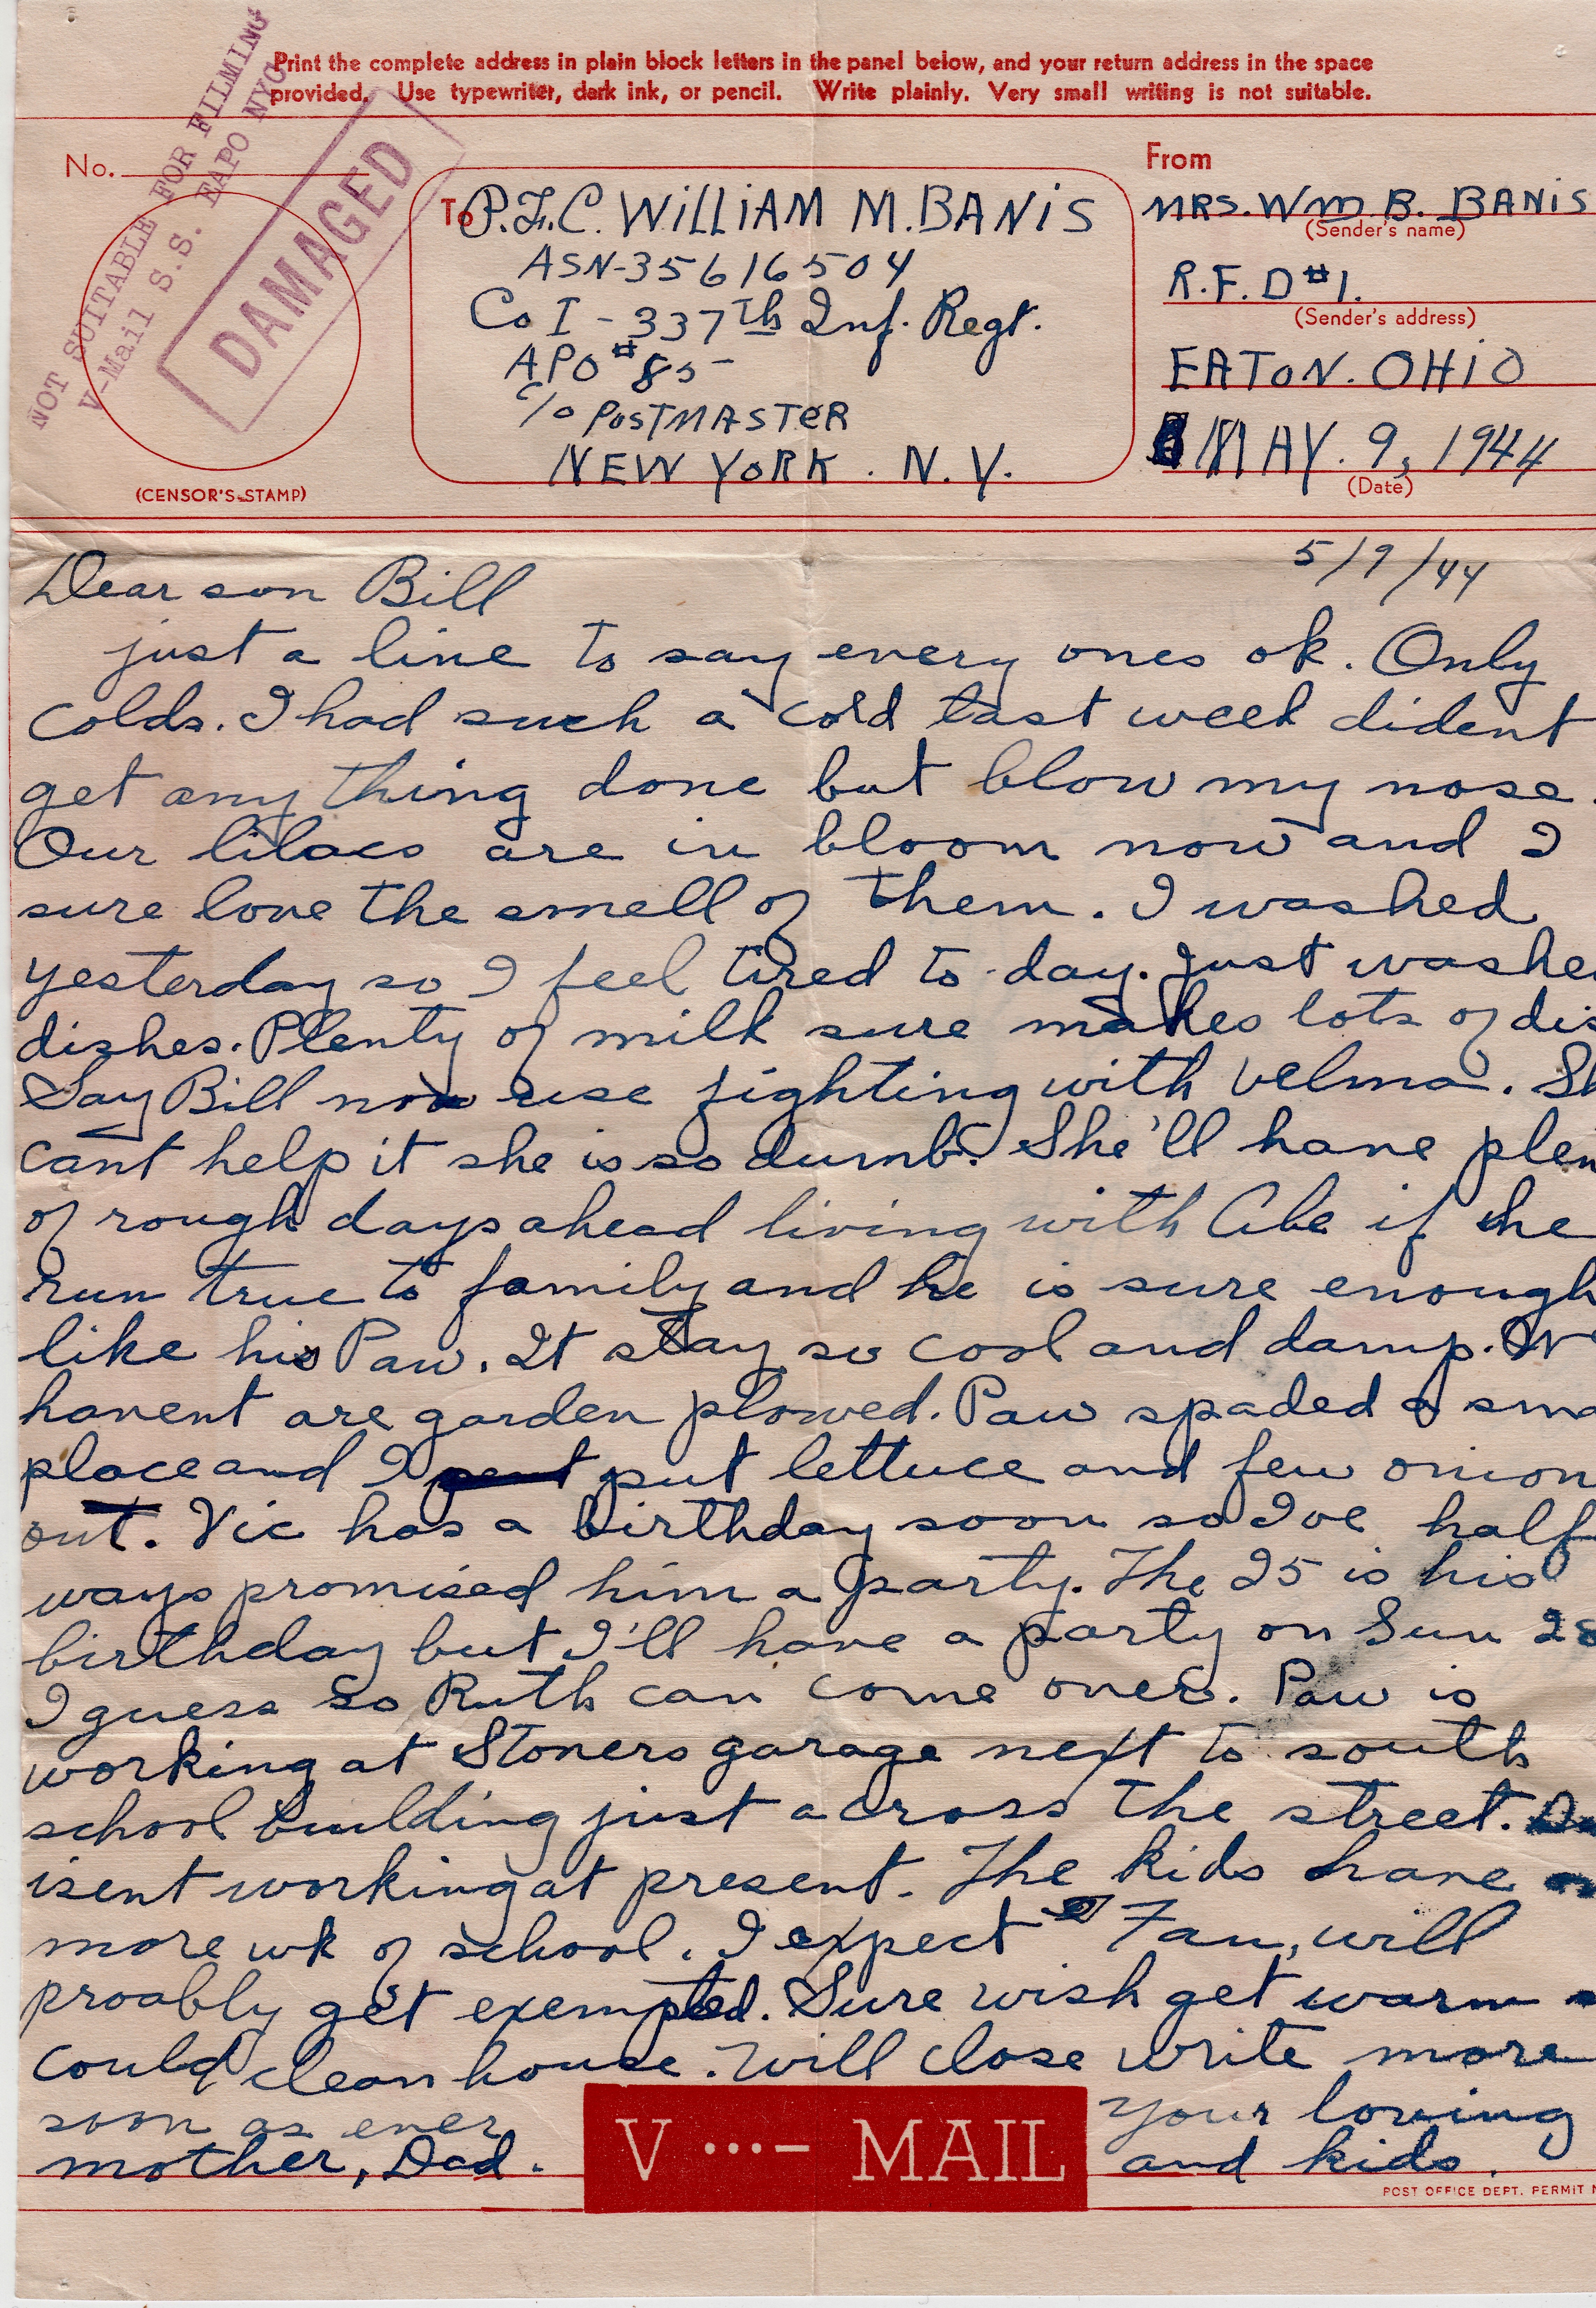 Print the complete address in plain block letters in the panel below, and your return address in the space
provided. Use typewriter, dark ink, or pencil. Write plainly. Very small writing is not suitable.
NOT SUITABLE FOR FILMING
V-Mail S.S. EAPO NYC
DAMAGED
No.
(CENSOR'S STAMP)
To P.F.C. WILLIAM M. BANIS
ASN-35616504
Co I - 337th Inf. Regt.
APO #85
c/o POSTMASTER
NEW YORK. N.Y.
From
MRS. Wm B. BANIS
(Sender's name)
R.F.D #1.
(Sender's address)
EATON. OHIO
MAY. 9, 1944
(Date)
5/9/44
Dear son Bill
just a line to say every ones ok. Only
colds. I had such a cold last week dident
get any thing done but blow my nose.
Our lilacs are in bloom now and I
sure love the smell of them. I washed
yesterday so I feel tired to day. Just washe
dishes. Plenty of milk sure makes lots of dis
Say Bill no use fighting with Velma. Sh
cant help it she is so dumb. She'll have plen
of rough days ahead living with Abe if she
run true to family and he is sure enough
like his Paw. It stay so cool and damp. We
havent are garden plowed. Paw spaded a sma
place and I put lettuce and few onion
out. Vic has a birthday soon so Ive half
ways promised him a party. The 25 is his
birthday but I'll have a party on Sun 28
I guess so Ruth can come over. Paw is
working at Stoners garage next to south
school building just across the street.
isent working at present. The kids have
more wk of school. I expect Fan, will
proably get exempted. Sure wish get warm
could clean house. Will close write more
soon as ever Your loving
mother, Dad. and kids.
V ...- MAIL
POST OFFICE DEPT. PERMIT